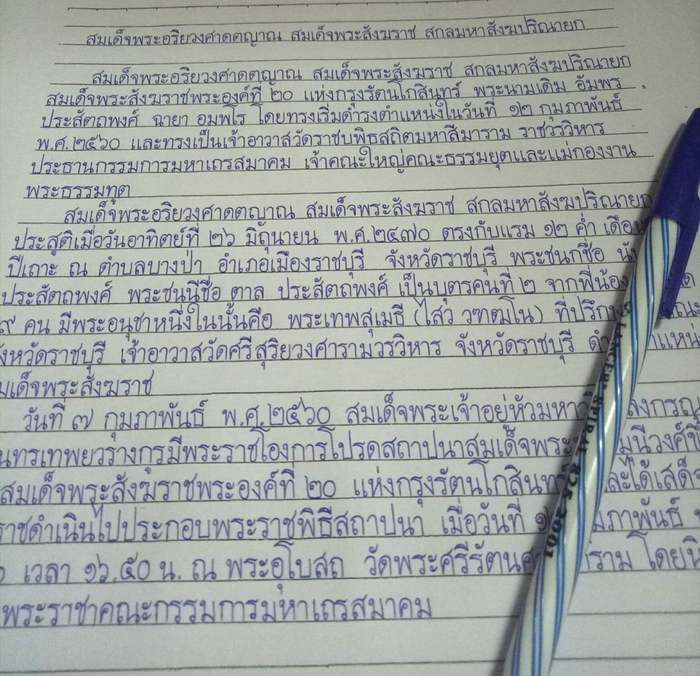 สมเด็จพระอริยวงศาคตญาณ สมเด็จพระสังฆราช สกลมหาสังฆปริณายก
สมเด็จพระอริยวงศาคตญาณ สมเด็จพระสังฆราช สกลมหาสังฆปริณายก
สมเด็จพระสังฆราชพระองค์ที่ ๒๐ แห่งกรุงรัตนโกสินทร์ พระนามเดิม อัมพร
ประสัตถพงศ์ ฉายา อมฺพโร โดยทรงเริ่มดำรงตำแหน่งในวันที่ ๑๒ กุมภาพันธ์
พ.ศ.๒๕๖๐ และทรงเป็นเจ้าอาวาสวัดราชบพิธสถิตมหาสีมาราม ราชวรวิหาร
ประธานกรรมการมหาเถรสมาคม เจ้าคณะใหญ่คณะธรรมยุตและแม่กองงาน
พระธรรมทูต
สมเด็จพระอริยวงศาคตญาณ สมเด็จพระสังฆราช สกลมหาสังฆปริณายก
ประสูติเมื่อวันอาทิตย์ที่ ๒๖ มิถุนายน พ.ศ.๒๔๗๐ ตรงกับแรม ๑๒ ค่ำ เดือน
ปีเถาะ ณ ตำบลบางป่า อำเภอเมืองราชบุรี จังหวัดราชบุรี พระชนกชื่อ
ประสัตถพงศ์ พระชนนีชื่อ ตาล ประสัตถพงศ์ เป็นบุตรคนที่ ๒ จากพี่น้อง
๙ คน มีพระอนุชาหนึ่งในนั้นคือ พระเทพสุเมธี (ไสว วฑฺฒโน) ที่ปรึก
จังหวัดราชบุรี เจ้าอาวาสวัดศรีสุริยวงศารามวรวิหาร จังหวัดราชบุรี
สมเด็จพระสังฆราช
วันที่ ๗ กุมภาพันธ์ พ.ศ.๒๕๖๐ สมเด็จพระเจ้าอยู่หัวมหา ลงกรณ
นทรเทพยวรางกูรมีพระราชโองการโปรดสถาปนาสมเด็จพระ มุนีวงศ์
สมเด็จพระสังฆราชพระองค์ที่ ๒๐ แห่งกรุงรัตนโกสินทร์ และได้เสด็จ
ราชดำเนินไปประกอบพระราชพิธีสถาปนา เมื่อวันที่ มภาพันธ์
เวลา ๑๖.๕๐ น. ณ พระอุโบสถ วัดพระศรีรัตน ราม โดย
พระราชาคณะกรรมการมหาเถรสมาคม